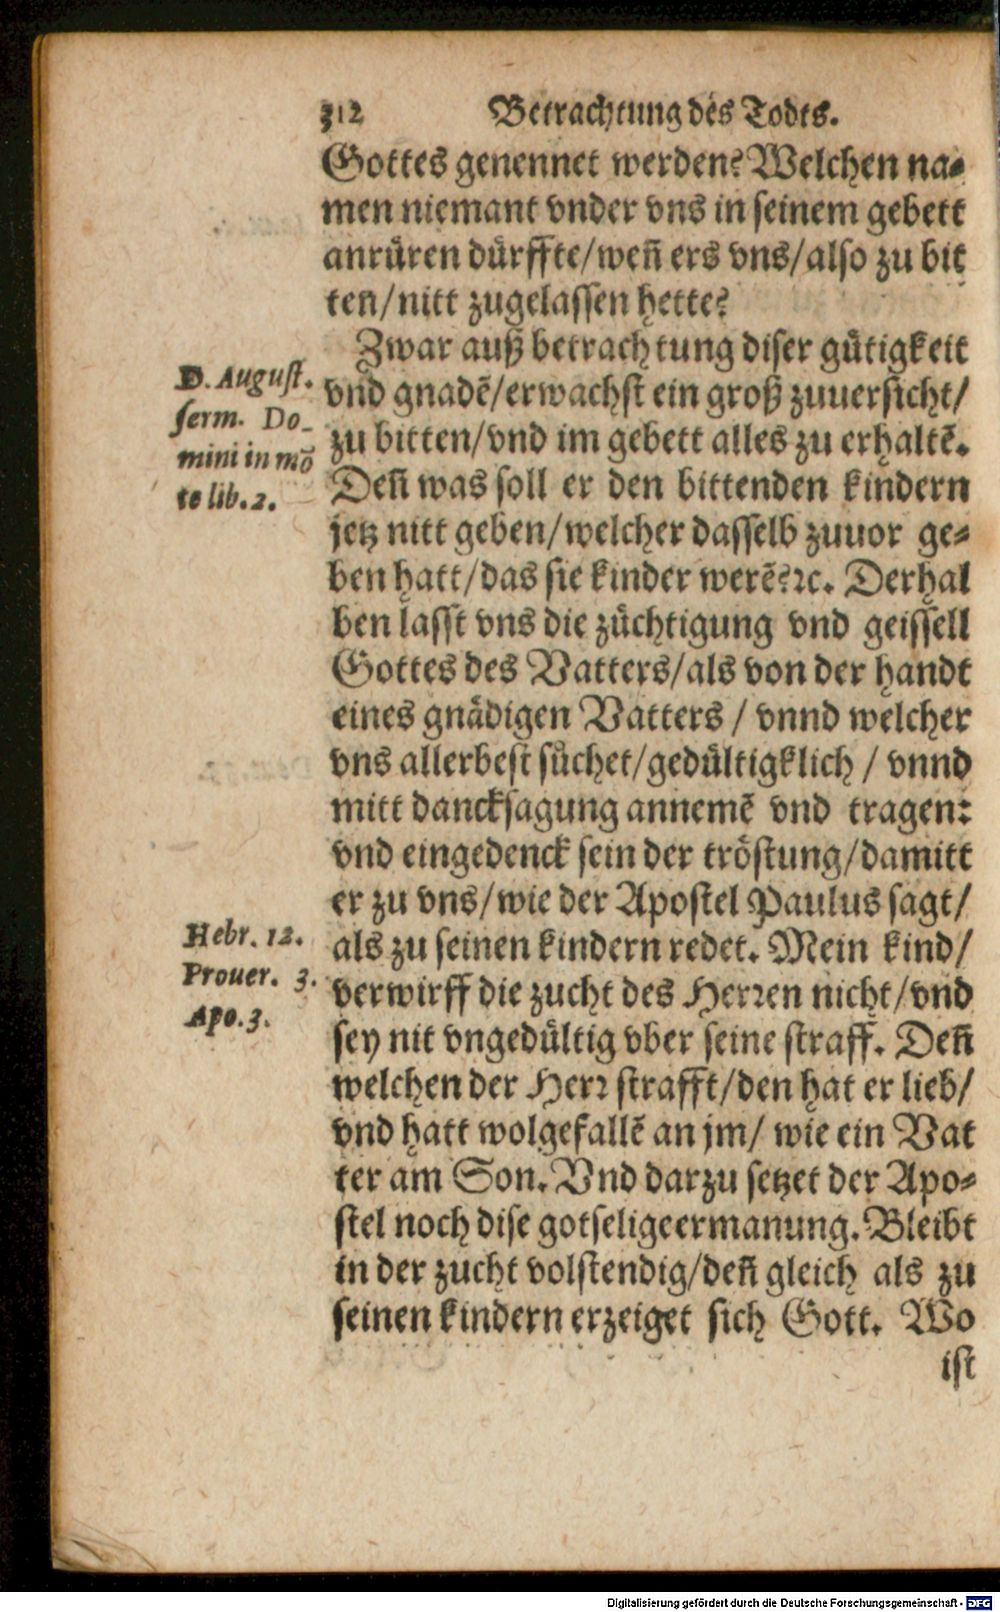 312 Betrachtung des Todts.
Gottes genennet werden? Welchen na-
men niemant vnder vns in seinem gebett
anrüren dürffte/ weñ ers vns/ also zu bit
ten/ nitt zugelassen hette?
Zwar auß betrachtung diser gütigkeit
vnd gnadē/ erwachst ein groß zuuersicht/
zu bitten/ vnd im gebett alles zu erhaltē.
Deñ was soll er den bittenden kindern
jetz nitt geben/ welcher dasselb zuuor ge-
ben hatt/ das sie kinder werē? ꝛc. Derhal
ben lasst vns die züchtigung vnd geissell
Gottes des Vatters/ als von der handt
eines gnädigen Vatters / vnnd welcher
vns allerbest süchet/ gedültigklich / vnnd
mitt dancksagung annemē vnd tragen:
vnd eingedenck sein der tröstung/ damitt
er zu vns/ wie der Apostel Paulus sagt/
als zu seinen kindern redet. Mein kind/
verwirff die zucht des Herren nicht/ vnd
sey nit vngedültig vber seine straff. Deñ
welchen der Herr strafft/ den hat er lieb/
vnd hatt wolgefallē an jm/ wie ein Vat
ter am Son. Vnd darzu setzet der Apo-
stel noch dise gotselige ermanung. Bleibt
in der zucht volstendig/ deñ gleich als zu
seinen kindern erzeiget sich Gott. Wo
ist
D. August.
serm. Do-
mini in mō
te lib. 2.
Hebr. 12.
Prouer. 3.
Apo. 3.
Digitalisierung gefördert durch die Deutsche Forschungsgemeinschaft - DFG